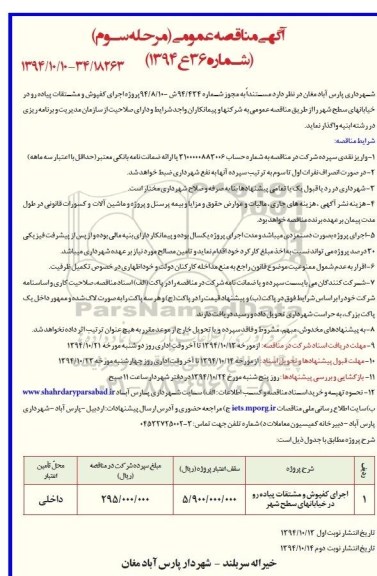 آگهی مناقصه عمومی (مرحله سوم)
(شماره ۳۶ع ۱۳۹۴)
۱۳۹۴/۱۰/۱۰-۳۴/۱۸۲۶۳
شهرداری پارس آباد مغان در نظر دارد مستنداً به مجوز شماره ۹۴/۴۳۴ ش ۹۴/۸/۱۰۰- پروژه اجرای کفپوش و مشتقات پیاده رو در
خیابانهای سطح شهر را از طریق مناقصه عمومی به شرکتها و پیمانکاران واجد شرایط و دارای صلاحیت از سازمان مدیریت و برنامه ریزی
در رشته ابنیه واگذار نماید.
شرایط مناقصه:
۱-واریز نقدی سپرده شرکت در مناقصه به شماره حساب ۳۱۰۰۰۰۰۸۸۳۰۰۶ یا ارائه ضمانت نامه بانکی معتبر (حداقل با اعتبار سه ماهه)
۲- در صورت انصراف نفرات اول تا سوم به ترتیب سپرده آنها به نفع شهرداری ضبط خواهد شد.
۳-شهرداری در رد یا قبول یک یا تمامی پیشنهادها بنا به صرفه و صلاح شهرداری مختار است.
۴- هزینه نشر آگهی ، هزینه های جاری، مالیات و عوارض حقوق و مزایا و بیمه پرسنل و پروژه و ماشین آلات و کسورات قانونی در طول
مدت پیمان بر عهده برنده مناقصه خواهد بود.
۵-اجرای پروژه بصورت دستمزدی میباشد و مدت اجرای پروژه یکسال بوده و پیمانکار دارای بنیه مالی بوده و از پس از پیشرفت فیزیکی
۳۰ درصد پروژه می تواند نسبت به اخذ مبلغ کار کرد خود اقدام نماید و تامین مصالح مورد نیاز بر عهده شهرداری میباشد.
۶-اقرار به عدم شمول ممنوعیت موضوع قانون راجع به منع مداخله کارکنان دولت و خود اظهاری در خصوص تکمیل ظرفیت.
۷-شرکت کنندگان می بایست سپرده و یا ضمانت نامه شرکت در مناقصه را در پاکت (الف) اسناد مناقصه، صلاحیت کاری و اساسنامه
شرکت خود را بر اساس شرایط فوق در پاکت (ب) و پیشنهاد قیمت را در پاکت (ج) و هر سه پاکت را به صورت لاک شده و ممهور داخل یک
پاکت بزرگ، به حراست شهرداری تحویل داده و رسید دریافت دارند.
۸-به پیشنهادهای مخدوش، مبهم، مشروط و فاقد سپرده و یا تحویل خارج از موعد مقرر به هیچ عنوان ترتیب اثر داده نخواهد شد.
۹-مهلت دریافت اسناد شرکت در مناقصه: از مورخه ۱۳۹۴/۱۰/۱۳ تا آخر وقت اداری روز دوشنبه مورخه ۱۳۹۴/۱۰/۲۱
۱۰-مهلت قبول پیشنهادها و تحویل اسناد: از مورخه ۱۳۹۴/۱۰/۱۳ تا آخر وقت اداری روز چهارشنبه مورخه ۱۳۹۴/۱۰/۲۳
۱۱- بازگشایی و بررسی پیشنهادها: روز پنج شنبه مورخ ۱۳۹۴/۱۰/۲۴ در دفتر شهردار ساعت ۱۱ صبح
۱۲- نحوه تهیه و خرید اسناد مناقصه و کسب اطلاعات: الف) سایت شهرداری پارس آباد www.shahrdaryparsabad.ir
ب) سایت اطلاع رسانی ملی مناقصات iets.mporg.ir ج) مراجعه حضوری و آدرس ارسال پیشنهادات: اردبیل – پارس آباد – شهرداری
پارس آباد – دبیرخانه کمیسیون معاملات د) شماره تلفن جهت تماس: ۳-۰۴۵۳۲۷۲۵۰۰۲
شرح پروژه مطابق با جدول ذیل است:
ردیف شرح پروژه سقف اعتبار پروژه (ریال) مبلغ سپرده شرکت در مناقصه (ریال) محل تأمین اعتبار
۱ اجرای کفپوش و مشتقات پیاده رو در خیابانهای سطح شهر ۵/۹۰۰/۰۰۰/۰۰۰ ۲۹۵/۰۰۰/۰۰۰ داخلی
تاریخ انتشار نوبت اول ۱۳۹۴/۱۰/۱۳
تاریخ انتشار نوبت دوم ۱۳۹۴/۱۰/۱۴
خیراله سربلند - شهردار پارس آباد مغان